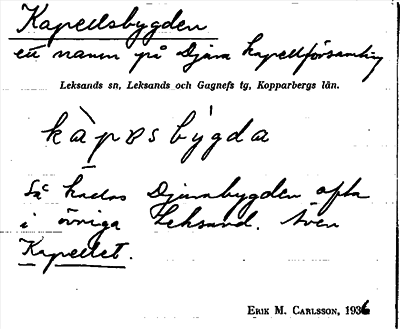 Kapellsbygden
ett namn på Djura kapellförsamling
Leksands sn, Leksands och Gagnefs tg, Kopparbergs län.
kàpɐsbýgda
Så kallas Djurabygden ofta
i övriga Leksand. Även
Kapellet.
ERIK M. CARLSSON, 1936